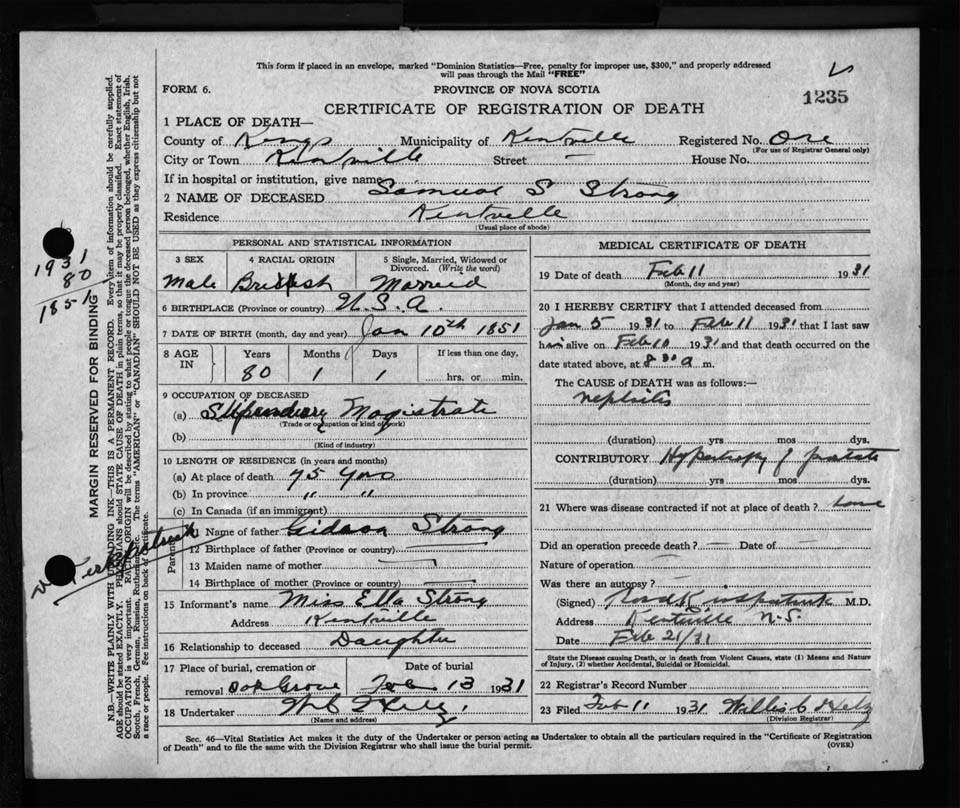 This form if placed in an envelope, marked "Dominion Statistics—Free, penalty for improper use, $300," and properly addressed
will pass through the Mail "FREE"
FORM 6.
PROVINCE OF NOVA SCOTIA
1235
CERTIFICATE OF REGISTRATION OF DEATH
1 PLACE OF DEATH—
County of Kings Municipality of Kentville Registered No. One
(For use of Registrar General only)
City or Town Kentville Street — House No.
If in hospital or institution, give name
2 NAME OF DECEASED Samuel S Strong
Residence Kentville
(Usual place of abode)
PERSONAL AND STATISTICAL INFORMATION
3 SEX 4 RACIAL ORIGIN 5 Single, Married, Widowed or Divorced. (Write the word)
Male British Married
6 BIRTHPLACE (Province or country) U.S.A.
7 DATE OF BIRTH (month, day and year) Jan 10th 1851
8 AGE IN Years Months Days If less than one day,
80 1 1 hrs. or min.
9 OCCUPATION OF DECEASED
(a) Stipendiary Magistrate
(Trade or occupation or kind of work)
(b)
(Kind of industry)
10 LENGTH OF RESIDENCE (in years and months)
(a) At place of death 75 Yrs
(b) In province " "
(c) In Canada (if an immigrant)
Parents
11 Name of father Gideon Strong
12 Birthplace of father (Province or country)
13 Maiden name of mother
14 Birthplace of mother (Province or country)
15 Informant's name Miss Ella Strong
Address Kentville
16 Relationship to deceased Daughter
17 Place of burial, cremation or removal Oak Grove Date of burial Feb 13 1931
18 Undertaker
(Name and address)
MEDICAL CERTIFICATE OF DEATH
19 Date of death Feb 11 1931
(Month, day and year)
20 I HEREBY CERTIFY that I attended deceased from
Jan 5 1931 to Feb 11 1931 that I last saw
him alive on Feb 10 1931 and that death occurred on the
date stated above, at 8 30 a m.
The CAUSE OF DEATH was as follows:—
nephritis
(duration) yrs mos dys.
CONTRIBUTORY Hypertrophy of prostate
(duration) yrs mos dys.
21 Where was disease contracted if not at place of death? home
Did an operation precede death? — Date of —
Nature of operation —
Was there an autopsy? —
(Signed) Kirkpatrick M.D.
Address Kentville N.S.
Date Feb
State the Disease causing Death, or in death from Violent Causes, state (1) Means and Nature
of Injury, (2) whether Accidental, Suicidal or Homicidal.
22 Registrar's Record Number
23 Filed Feb 11 1931 Willis C
(Division Registrar)
Sec. 46—Vital Statistics Act makes it the duty of the Undertaker or person acting as Undertaker to obtain all the particulars required in the "Certificate of Registration
of Death" and to file the same with the Division Registrar who shall issue the burial permit.
(OVER)
1931
80
1851
Kirkpatrick
MARGIN RESERVED FOR BINDING
N.B.—WRITE PLAINLY WITH UNFADING INK—THIS IS A PERMANENT RECORD. Every item of information should be carefully supplied.
AGE should be stated EXACTLY. PHYSICIANS should STATE CAUSE OF DEATH in plain terms, so that it may be properly classified. Exact statement of
OCCUPATION is very important. RACIAL ORIGIN will be described by stating to what people or tongue the deceased person belonged, whether English, Irish,
Scotch, French, German, Russian, Ruthenian, etc. The terms "AMERICAN" or "CANADIAN" SHOULD NOT BE USED as they express citizenship but not
a race or people. Fee instructions on back of certificate.